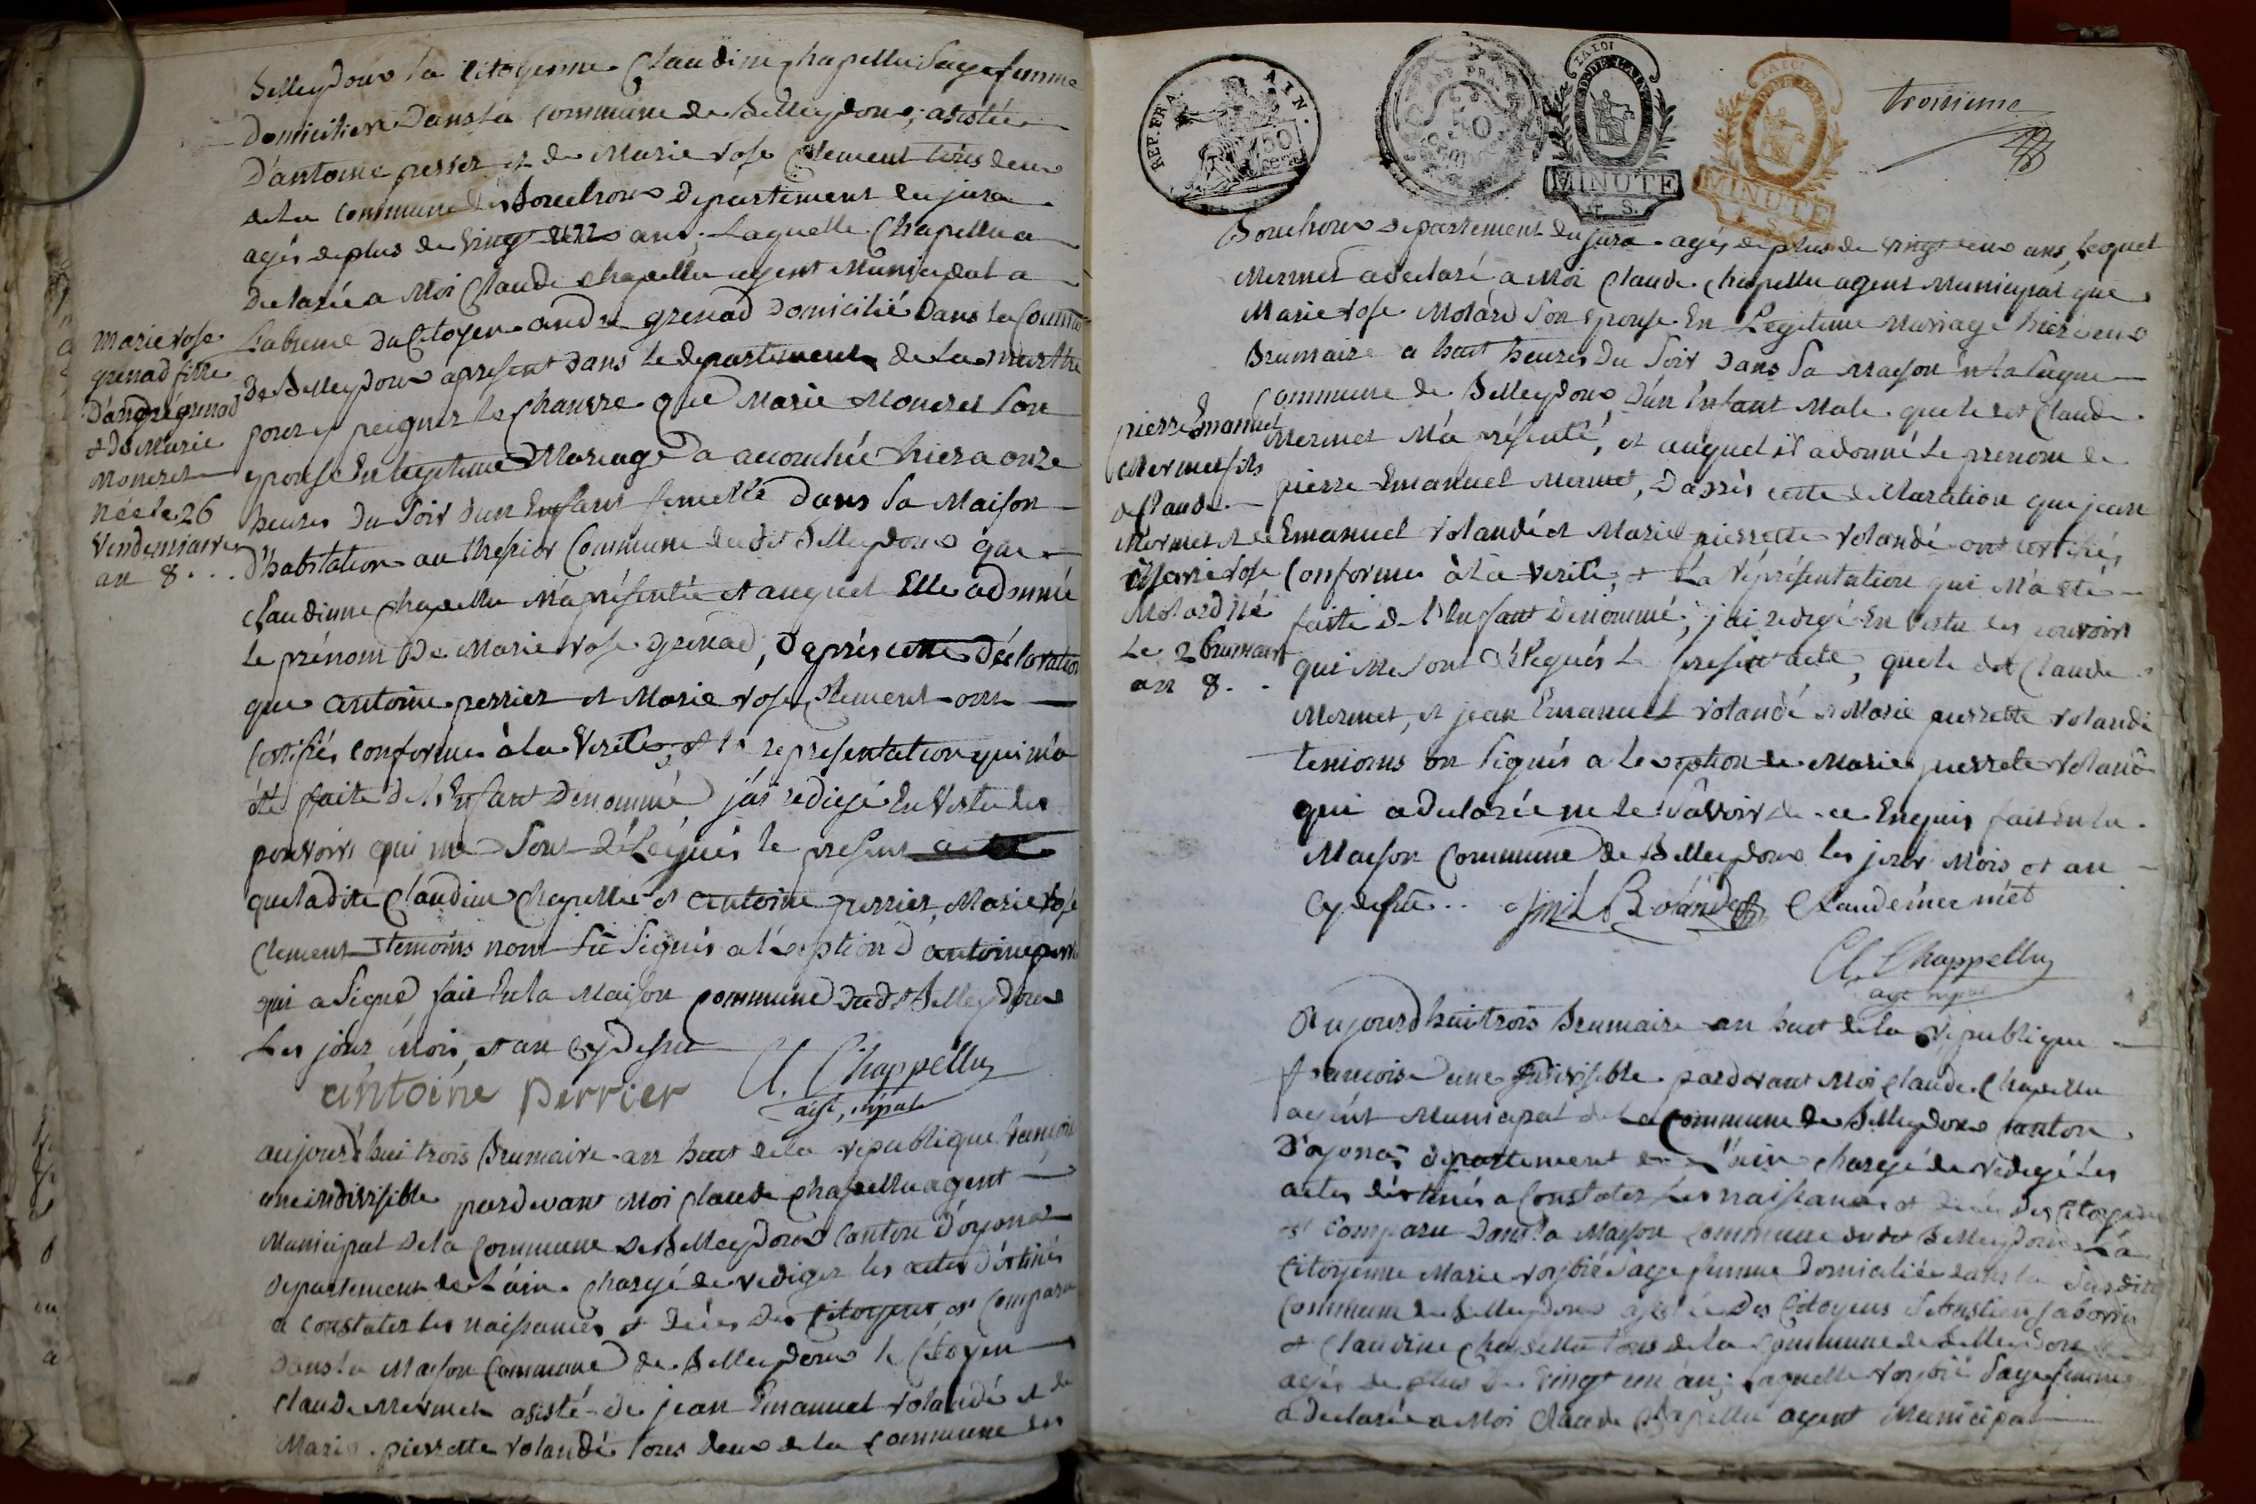 Belleydoux la Citoyenne Claudine chapellu Sagefemme
domiciliere Dans la Commune de Belleydoux, asistée
D'antoine perrier et de Marie rose Clement tous deux
de la commune des Bouchoux Departement du jura
agés de plus de Vingt ans; Laquelle Chapellu a
Declarée a Moi Claude Chapellu agent Municipal a
L'absence du Citoyen andré grenad Domicilié Dans la Commune
De Belleydoux apresent dans le departement de la meurthe
pour y peigner le Chanvre que Marie Moneret Son
epouse En legitime Mariage a accouchée hier a onze
heures Du Soir d'un Enfant femelle dans Sa Maison
D'habitation au Commune dudit Belleydoux que
Claudinne chapellu M'a présentée et auquel Elle a donné
le prénom De Marie rose grénad, D'aprés cette Déclaration
que antoine perrier et Marie rose Clement ont
Certifiés conforme à la Verité, et la representation qui m'a
été faite de l'Enfant Dénommé, j'ai redigé En Vertu des
pouvoirs qui me Sont Délégués le present acte
que ladite Claudine Chapellu et antoine perrier, Marie rose
Clement temoins n'ont Sû Signés a l'eption d'antoine perrier
qui a Signé, fait En la Maison commune dudt Belleydoux
Les jour, mois, et an Cy Dessus
antoine perrier Cl. Chappellu
agt. mpal
Marie rose
grenad fille
D'andré grenad
et De Marie
Moneret
née le 26
Vendemiaire
an 8...
aujourd'hui trois Brumaire an huit de la republique françoise
une indivisible pardevant Moi Claude Chapellu agent
Municipal De la Commune De Belleydoux Canton d'oyonas
Departement de L'ain. Chargé de rediger les actes déstinés
a constater les naissances et Décés Des Citoyens, est Comparu
Dans la Maison Commune De Belleydoux le Citoyen
Claude Mermet asisté de jean Emanuel rolandé et de
Marie pierrette rolandé tous deux de la Commune des
REP. FRA. AIN.
50
cent
LA LOI
MINUTE
T. S.
LA LOI
MINUTE
troisieme
Bouchoux departement du jura agés de plus de vingt ans, lequel
Mermet a declaré a Moi Claude Chapellu agent Municipal que
Marie rose Molard Son Epouse En Legitime Mariage hier deux
Brumaire a huit heures Du Soir Dans Sa Maison
Commune de Belleydoux D'un Enfant Male que le dit Claude
Mermet M'a présenté, et auquel il a donné le prenom de
pierre Emanuel Mermet, D'aprés cette declaration que jean
Emanuel rolandé et Marie pierrette rolandé ont certifié,
Conforme à la verité, et La réprésentation qui M'a été
faite de l'Enfant Dénommé; j'ai redigé En Vertu des pouvoirs
qui Me sont Délégués le present acte, que le dit Claude
Mermet, et jean Emanuel rolandé et Marie pierrette rolandé
temoins on Signés a leception de Marie pierrete rolandé
qui a declarée ne le sâvoir de ce Enquis fait En la
Maison Commune de Belleydoux les jour Mois et an
Cy dessus... Claude mer met
Cl. Chappellu
agt mpal
pierre Emanuel
Mermet fils
de Claude
Mermet et de
Marie rose
Molard né
Le 2 brumaire
an 8..
Aujourdhui trois Brumaire an huit de la republique
francoise une indivisible pardevant Moi Claude Chapellu
agent Municipal de La Commune de Belleydoux Canton
D'oyonas departement de L'ain chargé de redigé Les
actes déstinés a Constater Les naissances et décés Des Citoyens
est Comparu Dans la Maison Commune dudit Belleydoux La
Citoyenne Marie Sage femme Domiciliée dans la Susdite
Commune de Belleydoux asistée Des Citoyens
et Claudine Chapellu tous de la Commune de Belleydoux
agés de plus De Vingt un an; Laquelle Sage femme
a Declarée a Moi Claude Chapellu agent Municipal